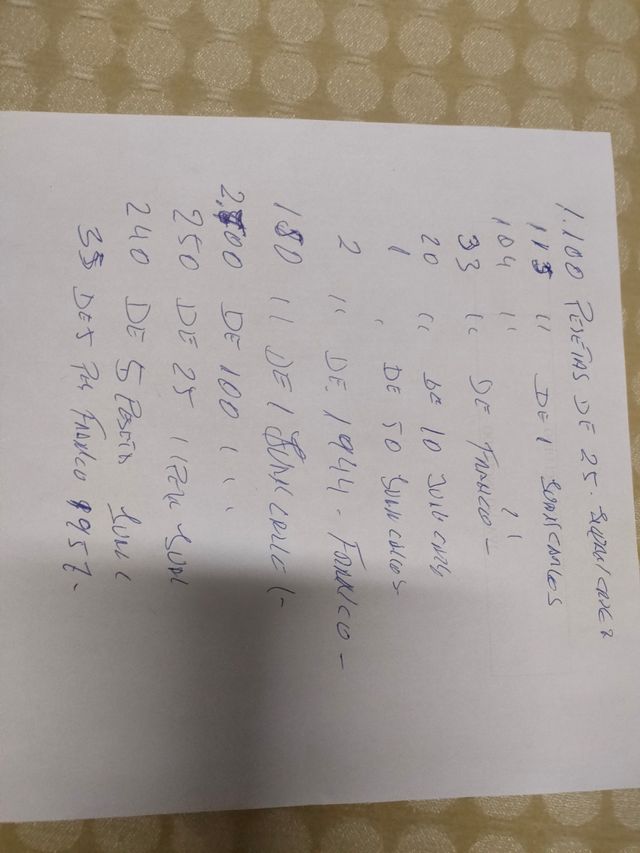 1.100 PESETAS DE 25.
113 " DE 1 JUAN CARLOS
104 " "
33 " DE FRANCO -
20 " DE 10 JUAN CARL
1 " DE 50 JUAN CARLOS
2 " DE 1944 - FRANCO -
180 " DE 1 JUAN CARLO
2.    DE 100 " "
250 DE 25
240 DE 5
35 DE 5 FRANCO 1957.